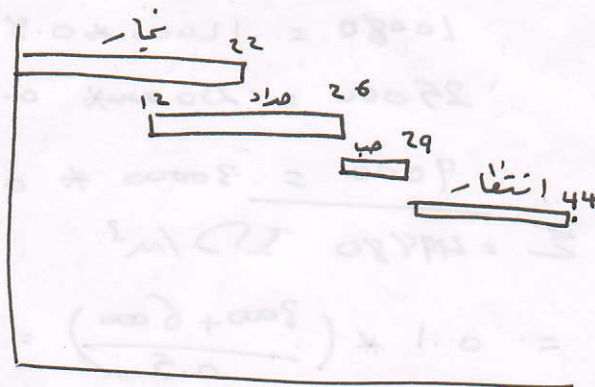 نجار
22
12 حداد 26
صب 29
انتظار 44